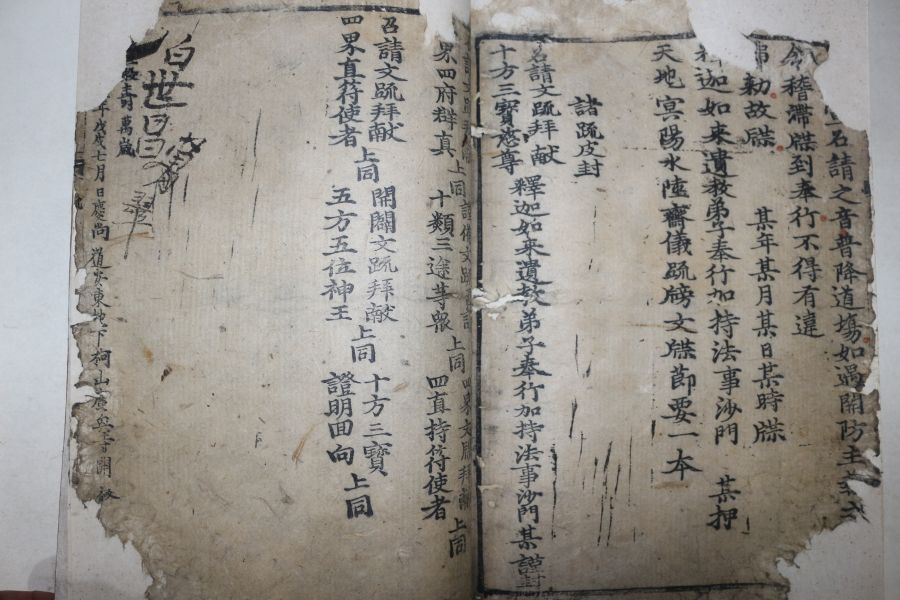 召請之音普降道場如過關防主
令稽滯牒到奉行不得有違
勅故牒 某年某月某日某時牒
釋迦如來遺教弟子奉行加持法事沙門 某押
天地冥陽水陸齋儀疏牓文牒節要一本
諸疏皮封
召請文疏拜献 釋迦如來遺教弟子奉行加持法事沙門某謹封
十方三寶慈尊
上同 上同
界四府群真 十類三途等衆 上同 四直持符使者
召請文疏拜献 上同 開闢文疏拜献 上同 十方三寶
四界真符使者 五方五位神王 證明回向 上同
主尚萬歲
年戊戌七月日慶尚道安東地下柯山廣興寺開板